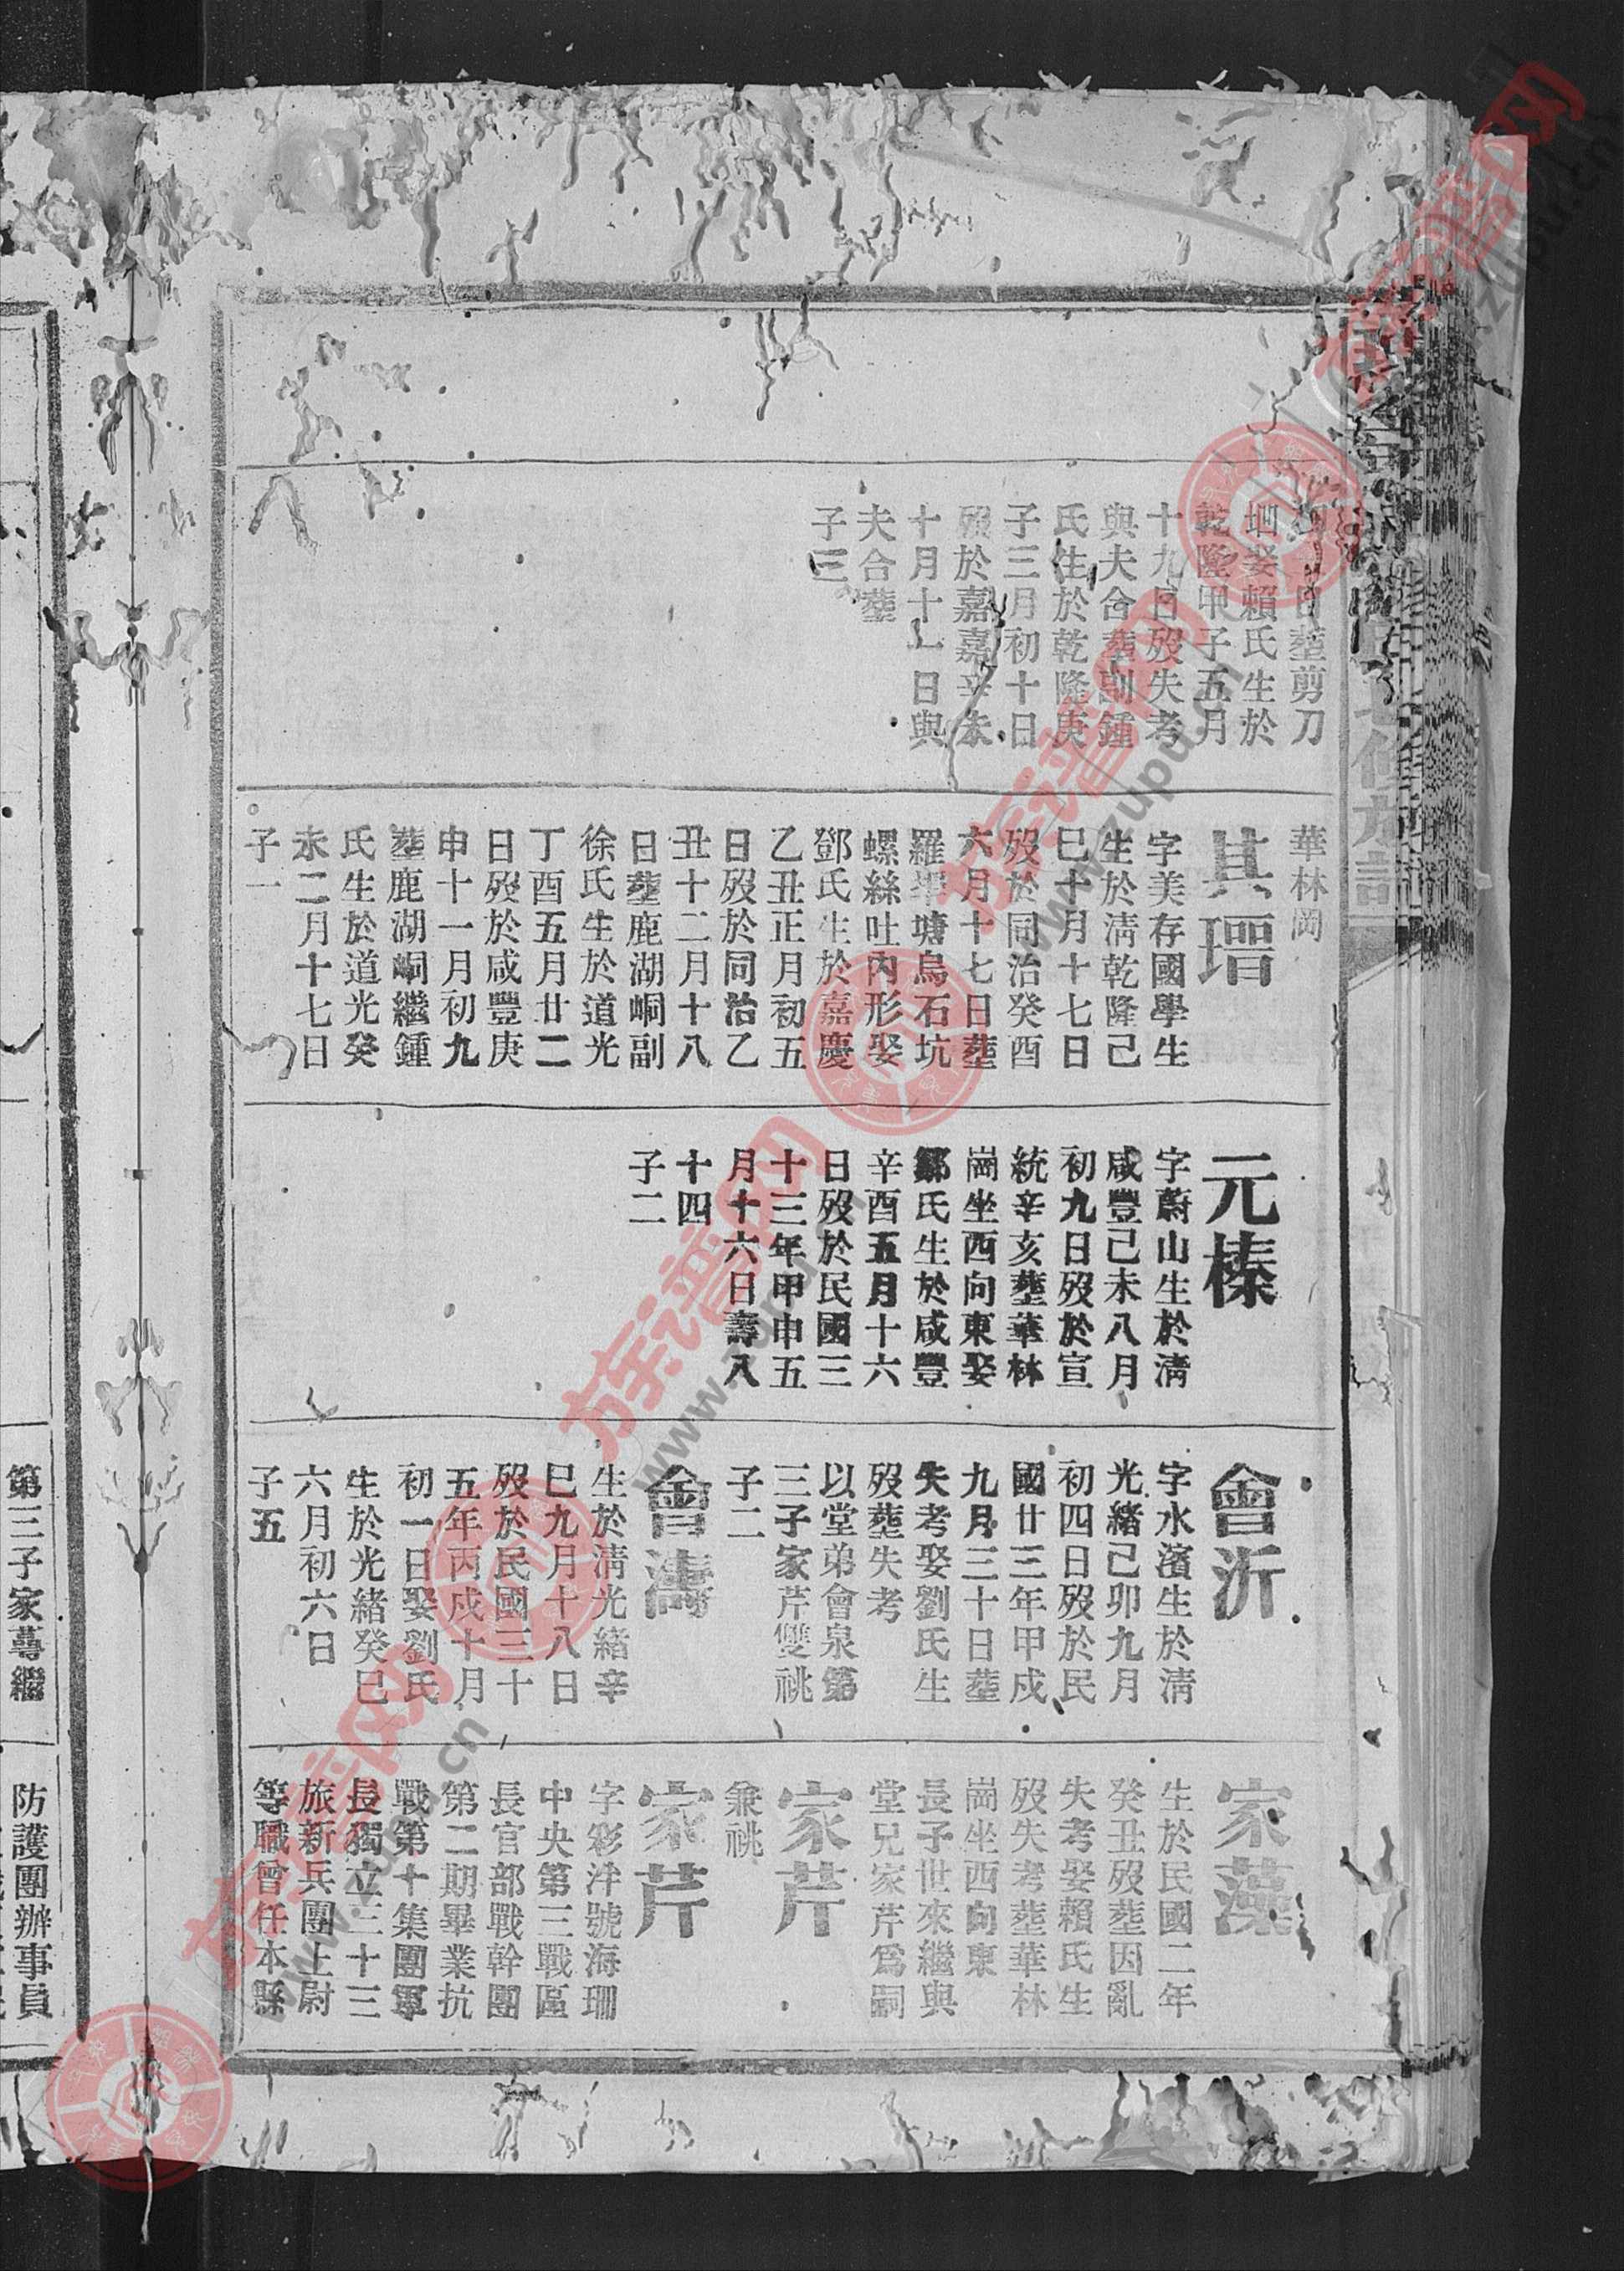 日塟剪刀
坵娶賴氏生於
乾隆甲子五月
十九日歿失考
與夫合塟副鍾
氏生於乾隆庚
子三月初十日
歿於嘉慶辛未
十月十一日與
夫合塟
子三
華林崗
其瑨
字美存國學生
生於清乾隆己
巳十月十七日
歿於同治癸酉
六月十七日塟
羅塘烏石坑
螺絲吐內形娶
鄧氏生於嘉慶
乙丑正月初五
日歿於同治乙
丑十二月十八
日塟鹿湖峒副
徐氏生於道光
丁酉五月廿二
日歿於咸豐庚
申十一月初九
塟鹿湖峒繼鍾
氏生於道光癸
未二月十七日
子一
元榛
字蔚山生於清
咸豐己未八月
初九日歿於宣
統辛亥塟華林
崗坐西向東娶
鄒氏生於咸豐
辛酉五月十六
日歿於民國三
十三年甲申五
月十六日壽八
十四
子二
會沂
字水濱生於清
光緒己卯九月
初四日歿於民
國廿三年甲戍
九月三十日塟
失考娶劉氏生
歿塟失考
以堂弟會泉第
三子家芹雙祧
子二
會濤
生於清光緒辛
巳九月十八日
歿於民國三十
五年丙戍十月
初一日娶劉氏
生於光緒癸巳
六月初六日
子五
家藻
生於民國二年
癸丑歿塟因亂
失考娶賴氏生
歿失考塟華林
崗坐西向東
長子世來繼與
堂兄家芹爲嗣
家芹
兼祧
家芹
字彩泮號海珊
中央第三戰區
長官部戰幹團
第二期畢業抗
戰第十集團軍
長獨立三十三
旅新兵團上尉
等職曾任本縣
第三子家蕚繼
防護團辦事員
www.zupu.cn
族谱网
www.zupu.cn
族谱网
www.zupu.cn
族谱网